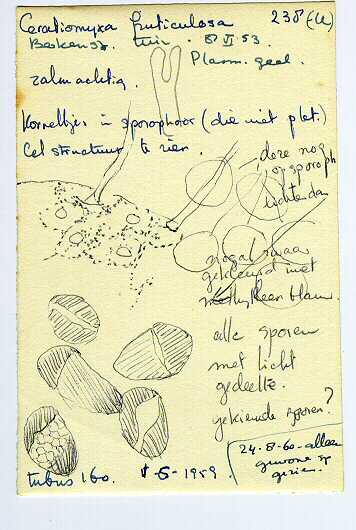 Ceratiomyxa fruticulosa 238 (U)
tuin. 8 VI 53.
Plasm. geel.
zalmachtig.
Korreltjes in sporophoor (die niet plet.)
Cel structuur te zien.
deze nog
op sporoph
lichter dan
nogal zwaar
gekleurd met
methyleen blauw.
alle sporen
met licht
gedeelte.
gekiemde sporen?
24-8-60 - alleen
gewone sp
gezien.
tubus 160. -6-1959